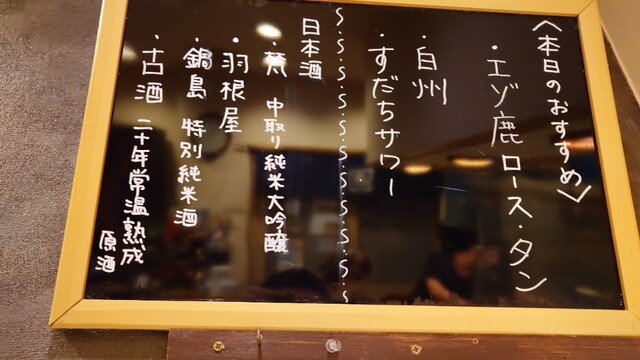 〈本日のおすすめ〉
・エゾ鹿ロース・タン
・白州
・すだちサワー
S.S.S.S.S.S.S.S.S.S.S.S.S.S.S
日本酒
・梵 中取り純米大吟醸
・羽根屋
・鍋島 特別純米酒
・古酒 二十年常温熟成
原酒